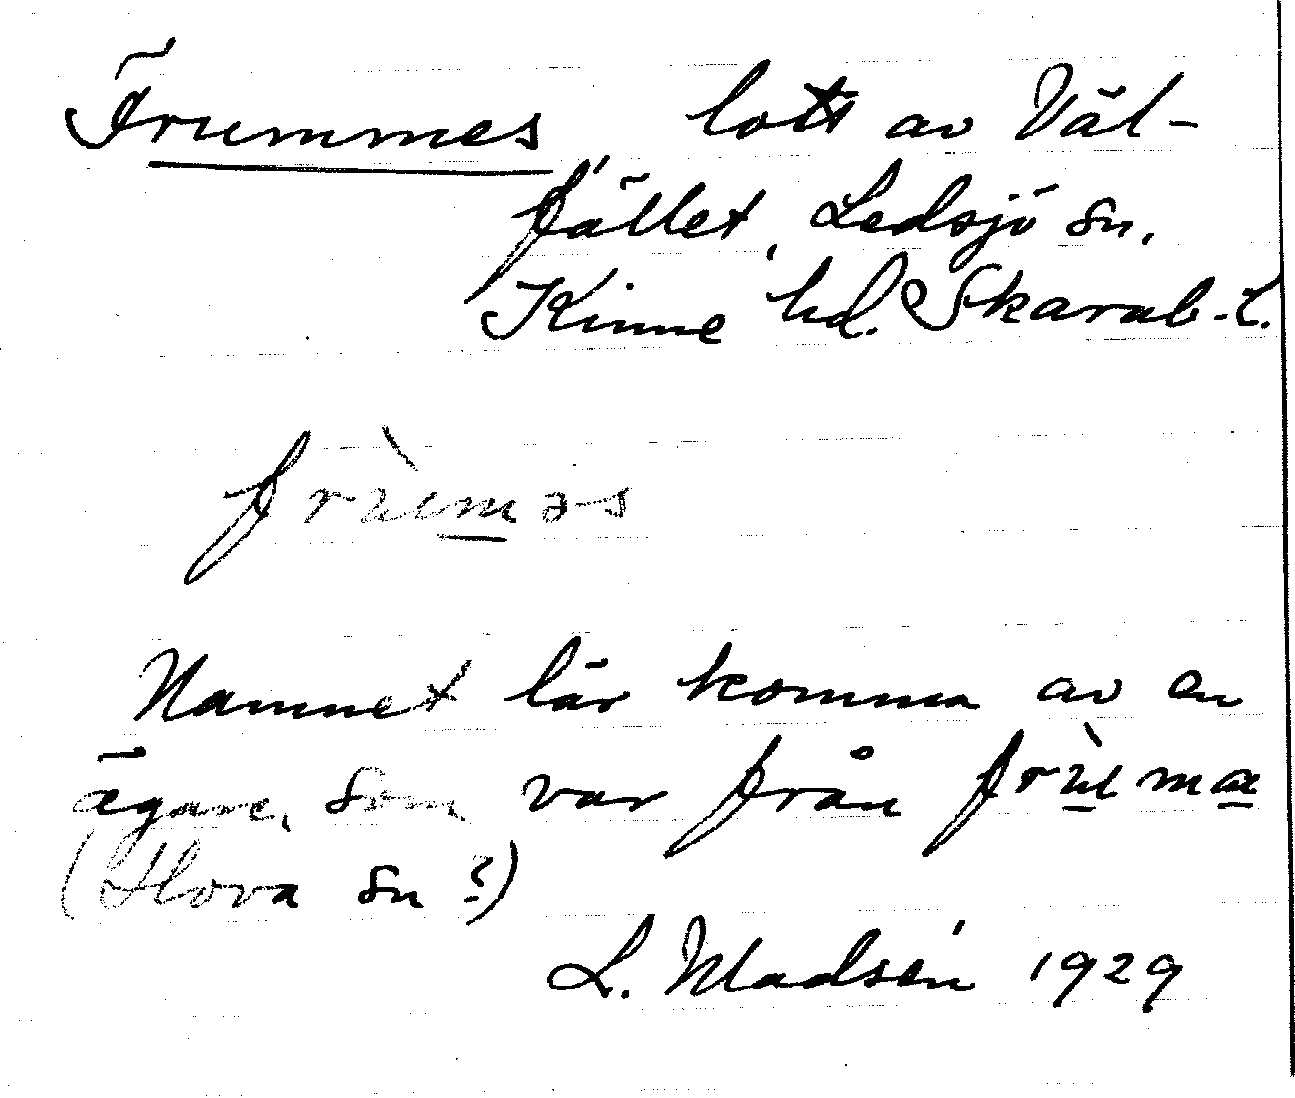 Frummes, lott av Väl-
fället, Ledsjö sn,
Kinne hd. Skarab. l.
frùməs
Namnet lär komma av en
ägare, som var från frùma
(Hova sn?)
L. Madsén 1929